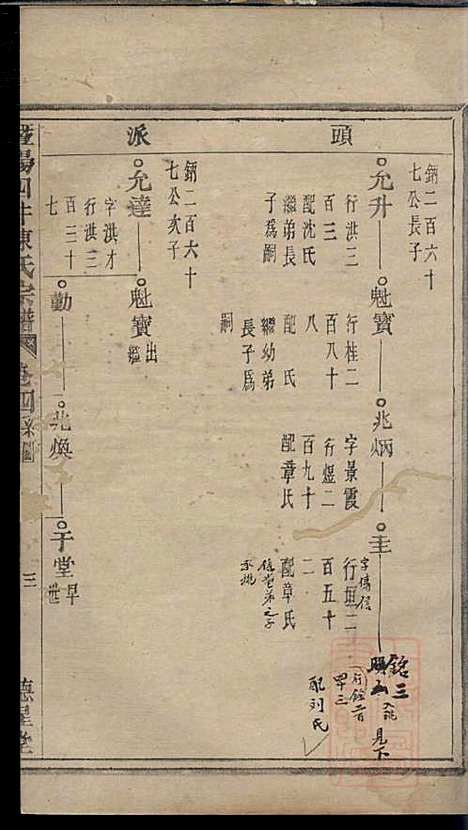 頭
鈵二百六十
七公長子
允升
行洪三
百三
配沈氏
繼弟長
子爲嗣
魁寶
行桂二
百八十
八
配 氏
繼幼弟
長子爲
嗣
兆炳
字景霞
行煜二
百九十
配章氏
圭
字偉信
行垣二
百五十
二
配章氏
銘三
入祧
見下
行銘二百
四十三
配刘氏
派
鈵二百六十
七公次子
允達
字洪才
行洪三
百三十
七
魁寶
出
繼
勳
兆煥
于堂
早
世
暨陽四牛陳氏宗譜
卷四系圖
三
德星堂